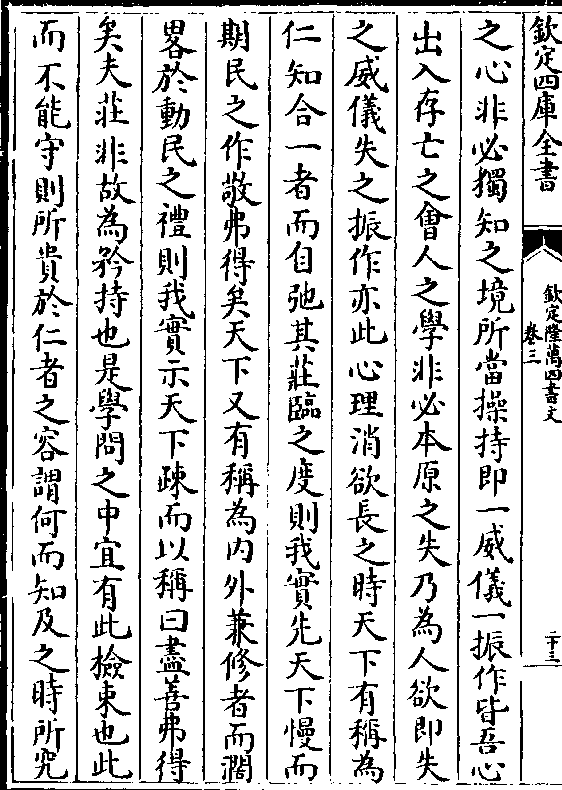 欽定四庫全書
欽定隆萬四書文
卷三
二十三
之心非必獨知之境所當操持即一威儀一振作皆吾心
出入存亡之會人之學非必本原之失乃為人欲即失
之威儀失之振作亦此心理消欲長之時天下有稱為
仁知合一者而自弛其莊臨之度則我實先天下慢而
期民之作敬弗得矣天下又有稱為内外兼修者而濶
畧於動民之禮則我實示天下疎而以稱曰盡善弗得
矣夫莊非故為矜持也是學問之中宜有此檢束也此
而不能守則所貴於仁者之容謂何而知及之時所究